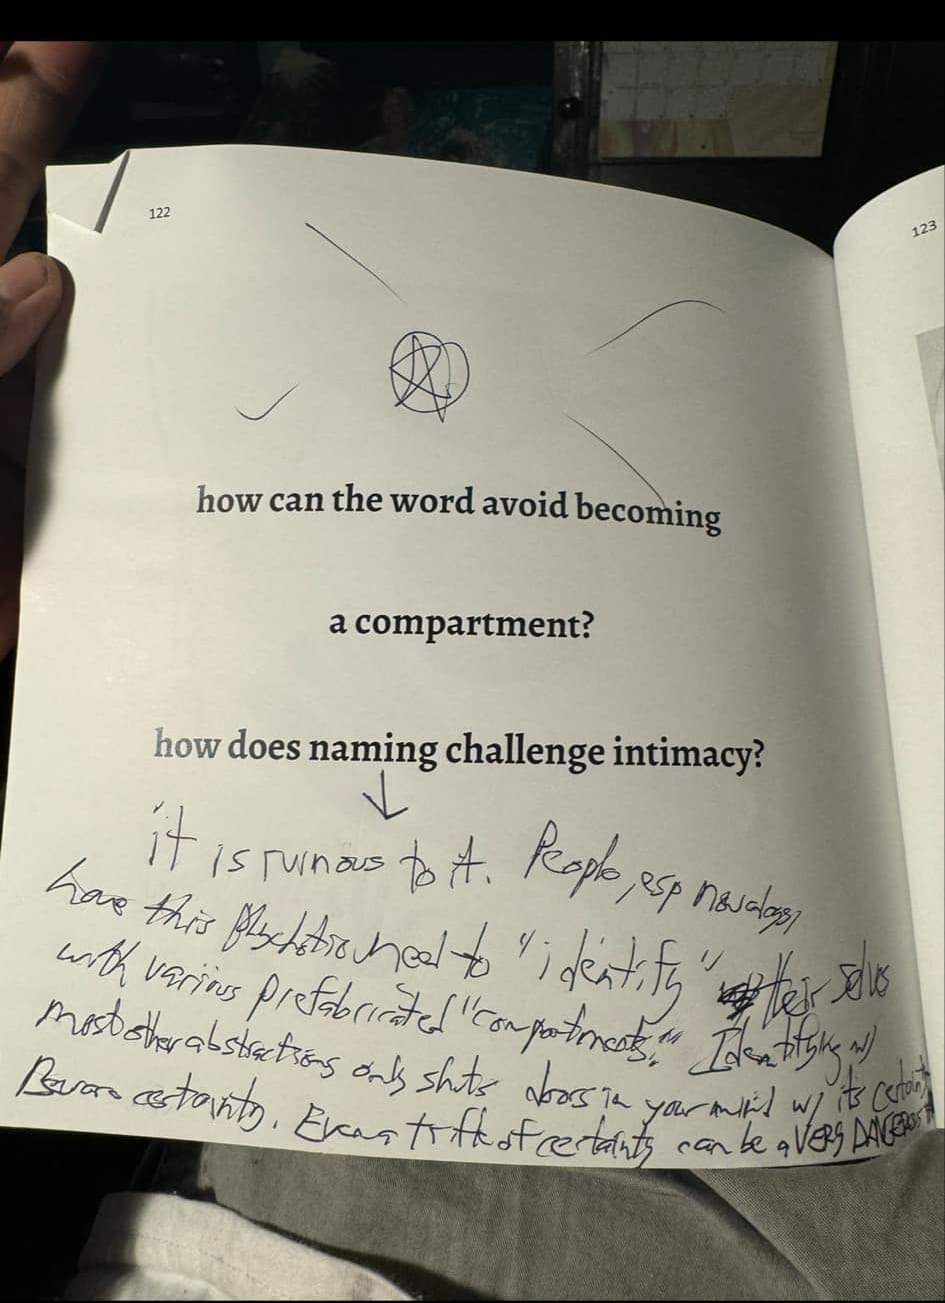 122
123
how can the word avoid becoming
a compartment?
how does naming challenge intimacy?
it is ruinous to it. People, esp nowadays,
have this need to "identify" their selves
with various prefabricated "compartments." Identifying w/
most other abstractions only shuts doors in your mind w/ its certainty
Beware certainty. Even a of certainty can be a VERY DANGEROUS